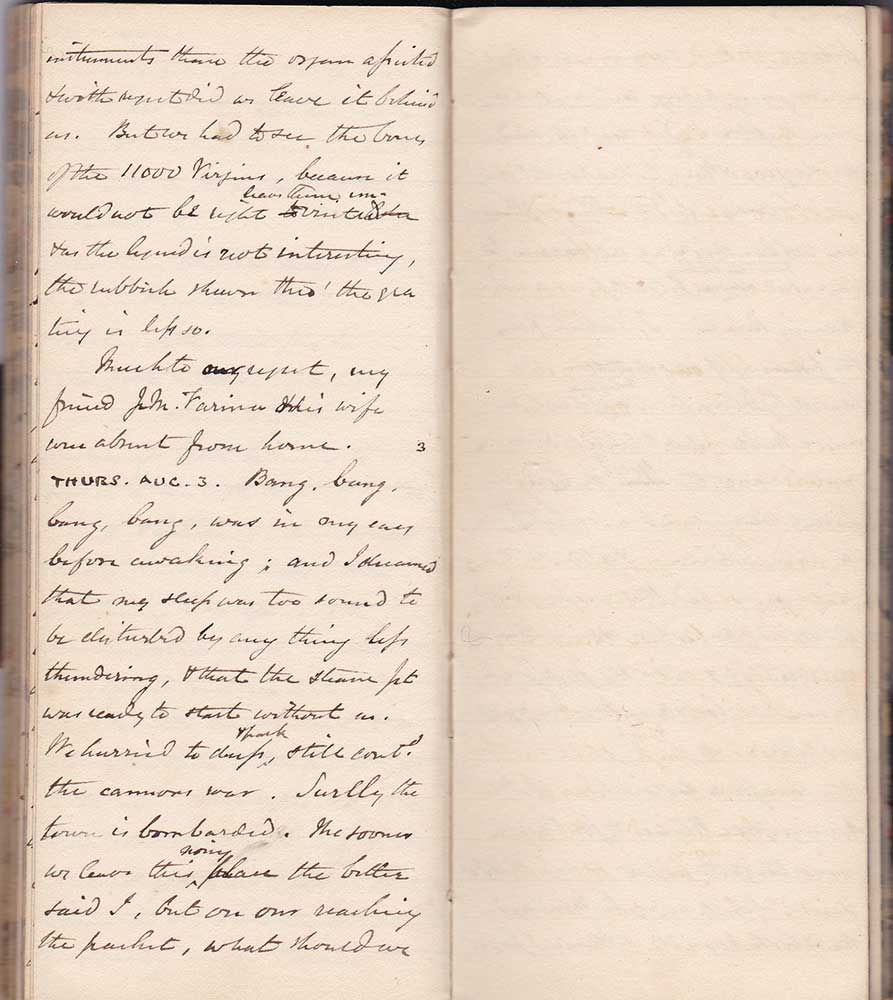 instruments than the organ assisted
& with regret did we leave it behind
us. But we had to see the bones
of the 11000 Virgins, because it
leave them un-
would not be right to visited
& as the legend is not interesting,
the rubbish shewn thro' the gra
ting is less so.
Much to my regret, my
friend J. M. Farina & his wife
were absent from home. 3
THURS. AUG. 3. Bang, bang,
bang, bang, was in my ears
before awaking; and I dreamed
that my sleep was too sound to
be disturbed by any thing less
thundering, & that the steam pt
was ready to start without us.
& pack
We hurried to dress, still contd.
the cannons roar. Surely the
town is bombarded. The sooner
noisy
we leave this place the better
said I, but on our reaching
the packet, what should we